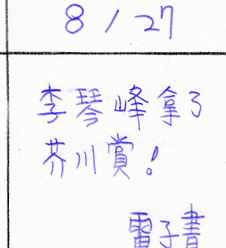 8/27
李琴峰拿了
芥川賞!
電子書